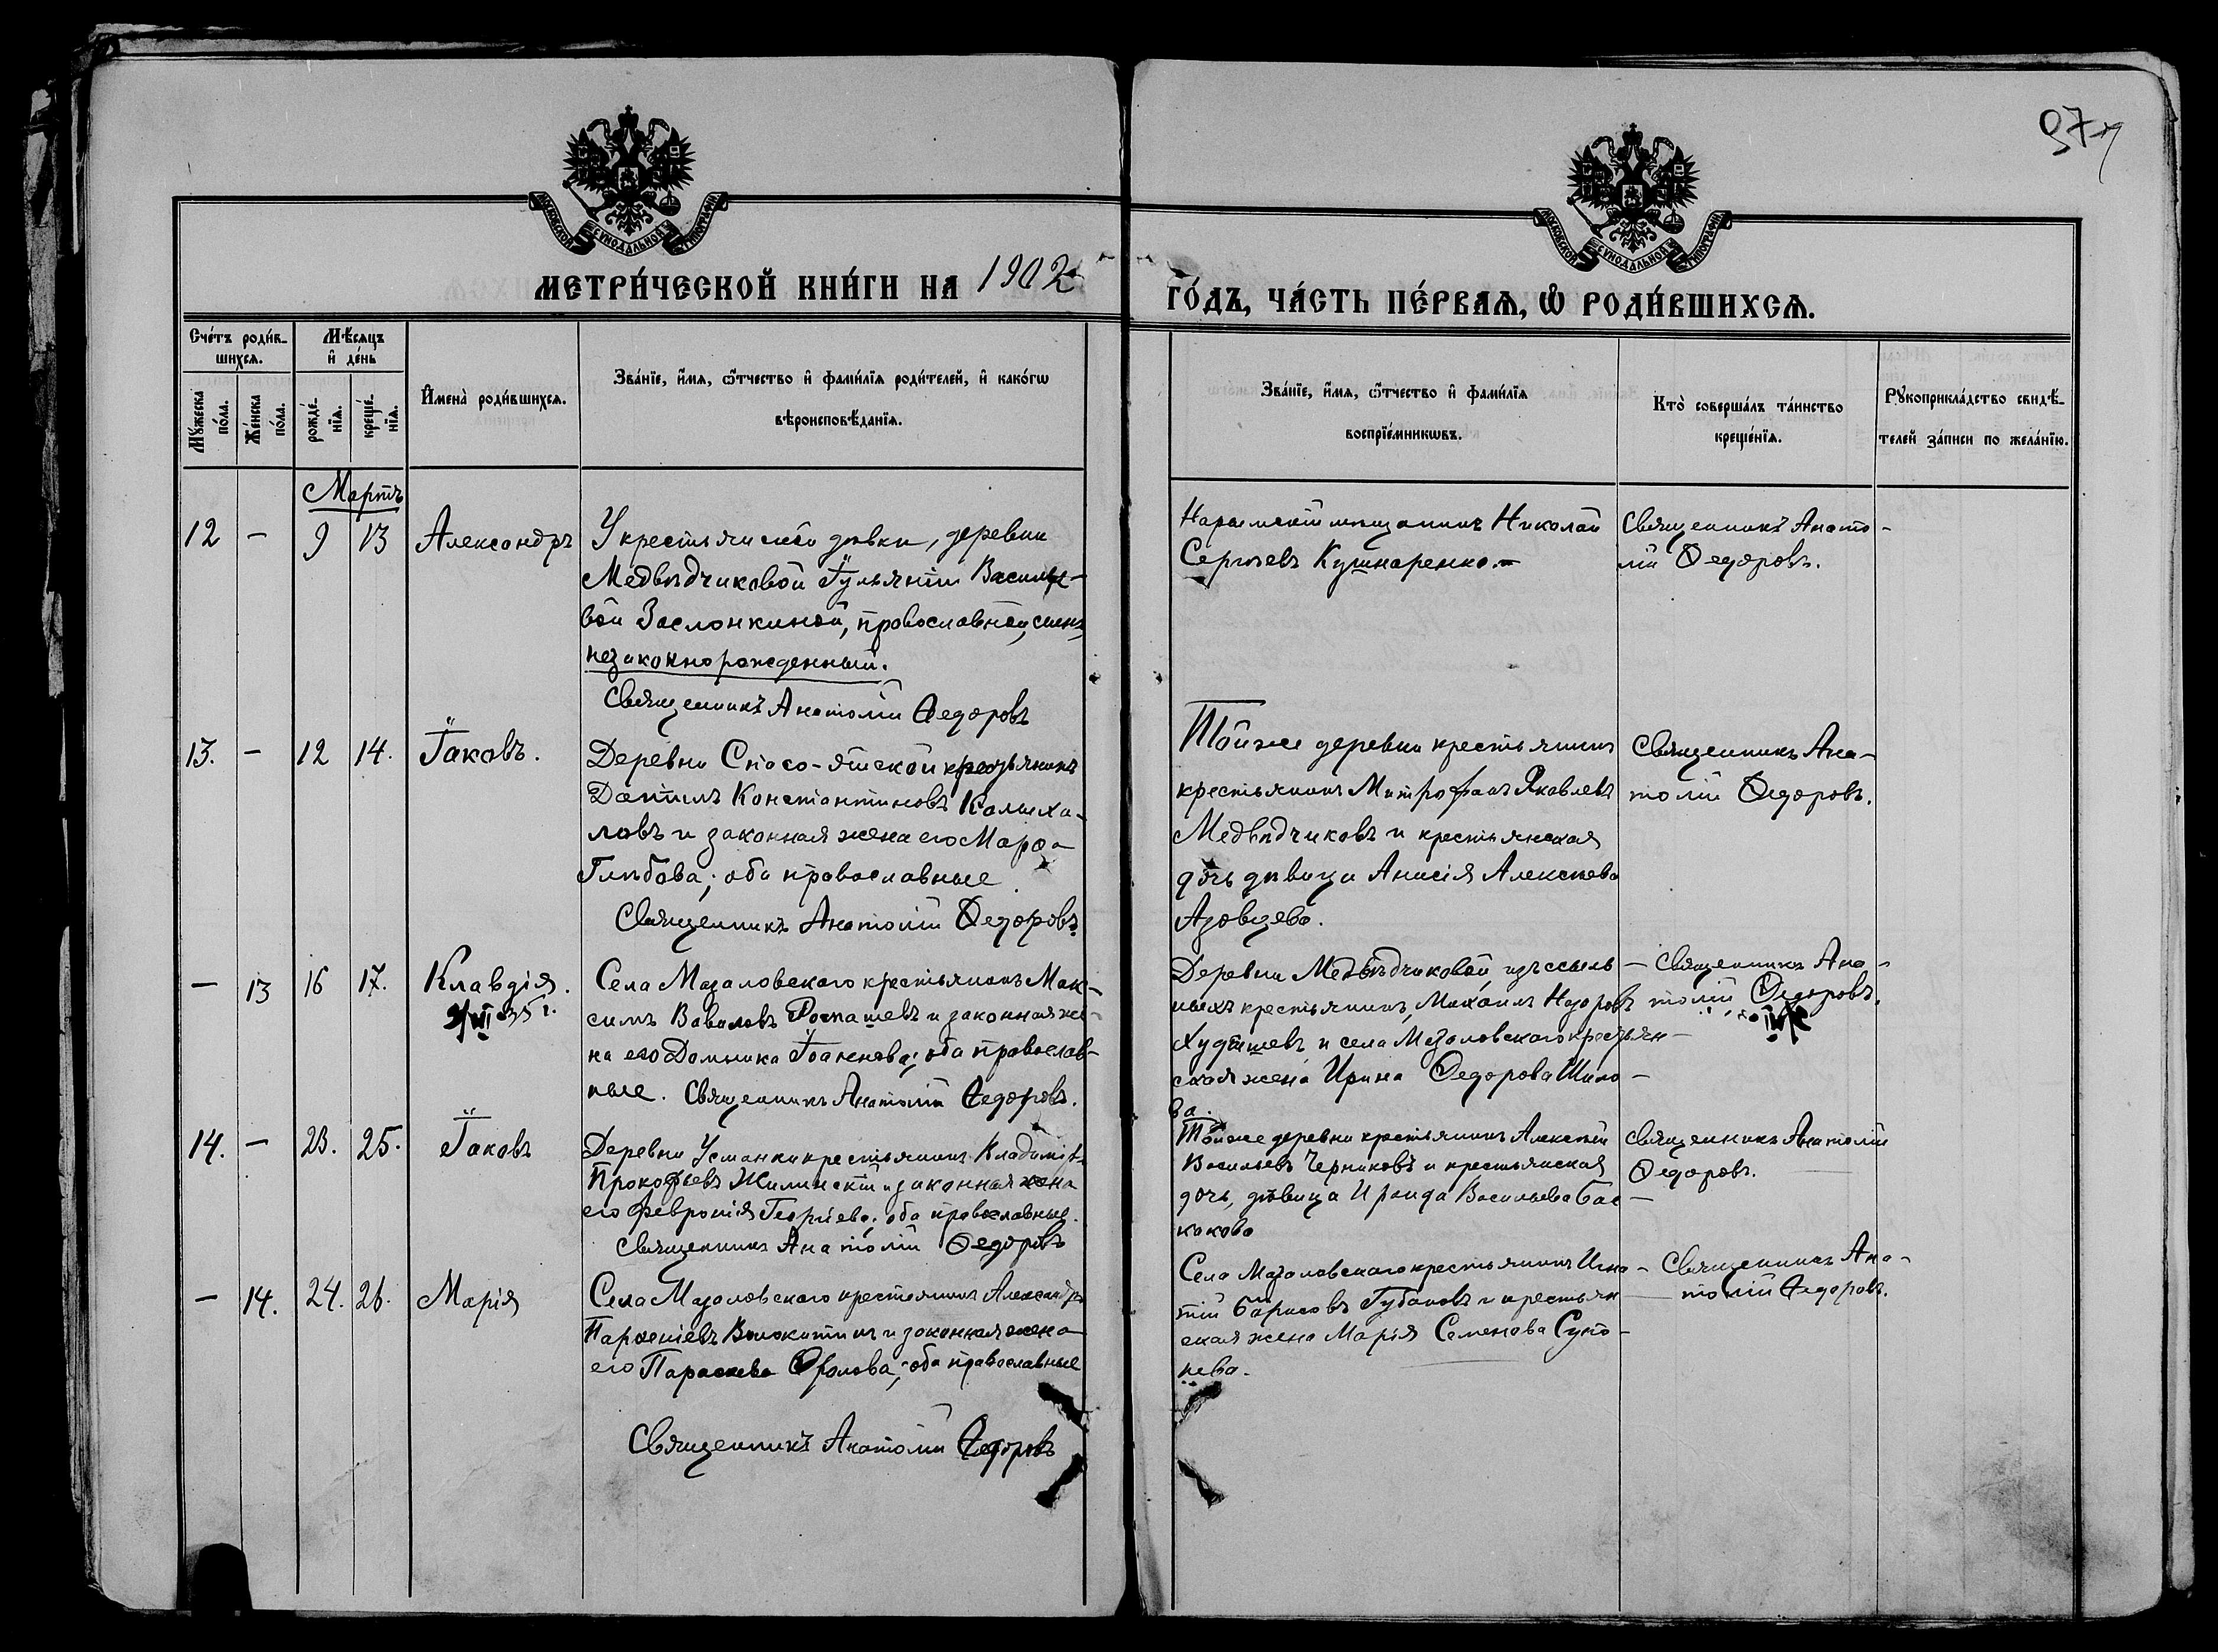 97
МОСКОВСКОЙ СѴНОДАЛЬНОЙ ТИПОГРАФІИ
МОСКОВСКОЙ СѴНОДАЛЬНОЙ ТИПОГРАФІИ
МЕТРИ́ЧЕСКОЙ КНИ́ГИ НА 1902
ГО́ДЪ, ЧА́СТЬ ПЕ́РВАѦ, Ѽ РОДИ́ВШИХСѦ.
Сче́тъ роди́в-
шихсѧ.
Мꙋ́жеска
по́ла.
Же́нска
по́ла.
Мѣ́сѧцъ
и҆ де́нь
рожде́-
нїѧ.
креще́-
нїѧ.
И҆мена̀ роди́вшихсѧ.
Зва́нїе, и҆́мѧ, ѻ҆́тчество и҆ фами́лїѧ роди́телей, и҆ како́гѡ
вѣроисповѣ́данїѧ.
Зва́нїе, и҆́мѧ, ѻ҆́тчество и҆ фами́лїѧ
воспрїе́мникѡвъ.
Кто̀ соверша́лъ та́инство
креще́нїѧ.
Рꙋкоприкла́дство свидѣ́-
телей за́писи по жела́нїю.
Мартъ
12 - 9 13 Александръ
У крестьянской дѣвки, деревни
Медвѣдчиковой Іульяніи Василье-
вой Заслонкиной, православной, сынъ
незаконнорожденный.
Священникъ Анатолій Ѳедоровъ
Нарымскій мѣщанинъ Николай
Сергѣевъ Кушнаренко.
Священникъ Анато-
лій Ѳедоровъ.
13. - 12 14. Іаковъ.
Деревни Спасо-Яйской крестьянинъ
Даніилъ Константиновъ
и законная жена его Марѳа
Глѣбова; оба православные
Священникъ Анатолій Ѳедоровъ.
Той же деревни крестьянинъ
крестьянинъ Митрофанъ Яковлевъ
Медвѣдчиковъ и крестьянская
дочь дѣвица Анисія Алексѣева
Азовцева.
Священникъ Ана-
толій Ѳедоровъ.
- 13 16 17. Клавдія.
35 г.
Села Мазаловскаго крестьянинъ Мак-
симъ Вавиловъ и законная же-
на его Домника Іоаннова; оба православ-
ные. Священникъ Анатолій Ѳедоровъ.
Деревни Медвѣдчиковой, изъ ссыль-
ныхъ крестьянинъ, Михаилъ Назаровъ
и села Мазаловскаго крестьян-
ская жена Ирина Ѳедорова Шило-
ва.
Священникъ Ана-
толій Ѳедоровъ.
14. - 23. 25. Іаковъ
Деревни Усманки крестьянинъ Владиміръ
Прокофьевъ Жилинскій и законная жена
его Февронія Георгіева; оба православные.
Священникъ Анатолій Ѳедоровъ
Той же деревни крестьянинъ Алексѣй
Васильевъ Черниковъ и крестьянская
дочь, дѣвица Ираида Васильева Бас-
какова
Священникъ Анатолій
Ѳедоровъ.
- 14. 24. 26. Марія
Села Мазаловскаго крестьянинъ Александръ
Парѳеніевъ Волокитинъ и законная жена
его Параскева Фролова; оба православные
Священникъ Анатолій Ѳедоровъ
Села Мазаловскаго крестьянинъ Игна-
тій Борисовъ Губановъ и крестьян-
ская жена Марія Семенова Супо-
нева.
Священникъ Ана-
толій Ѳедоровъ.